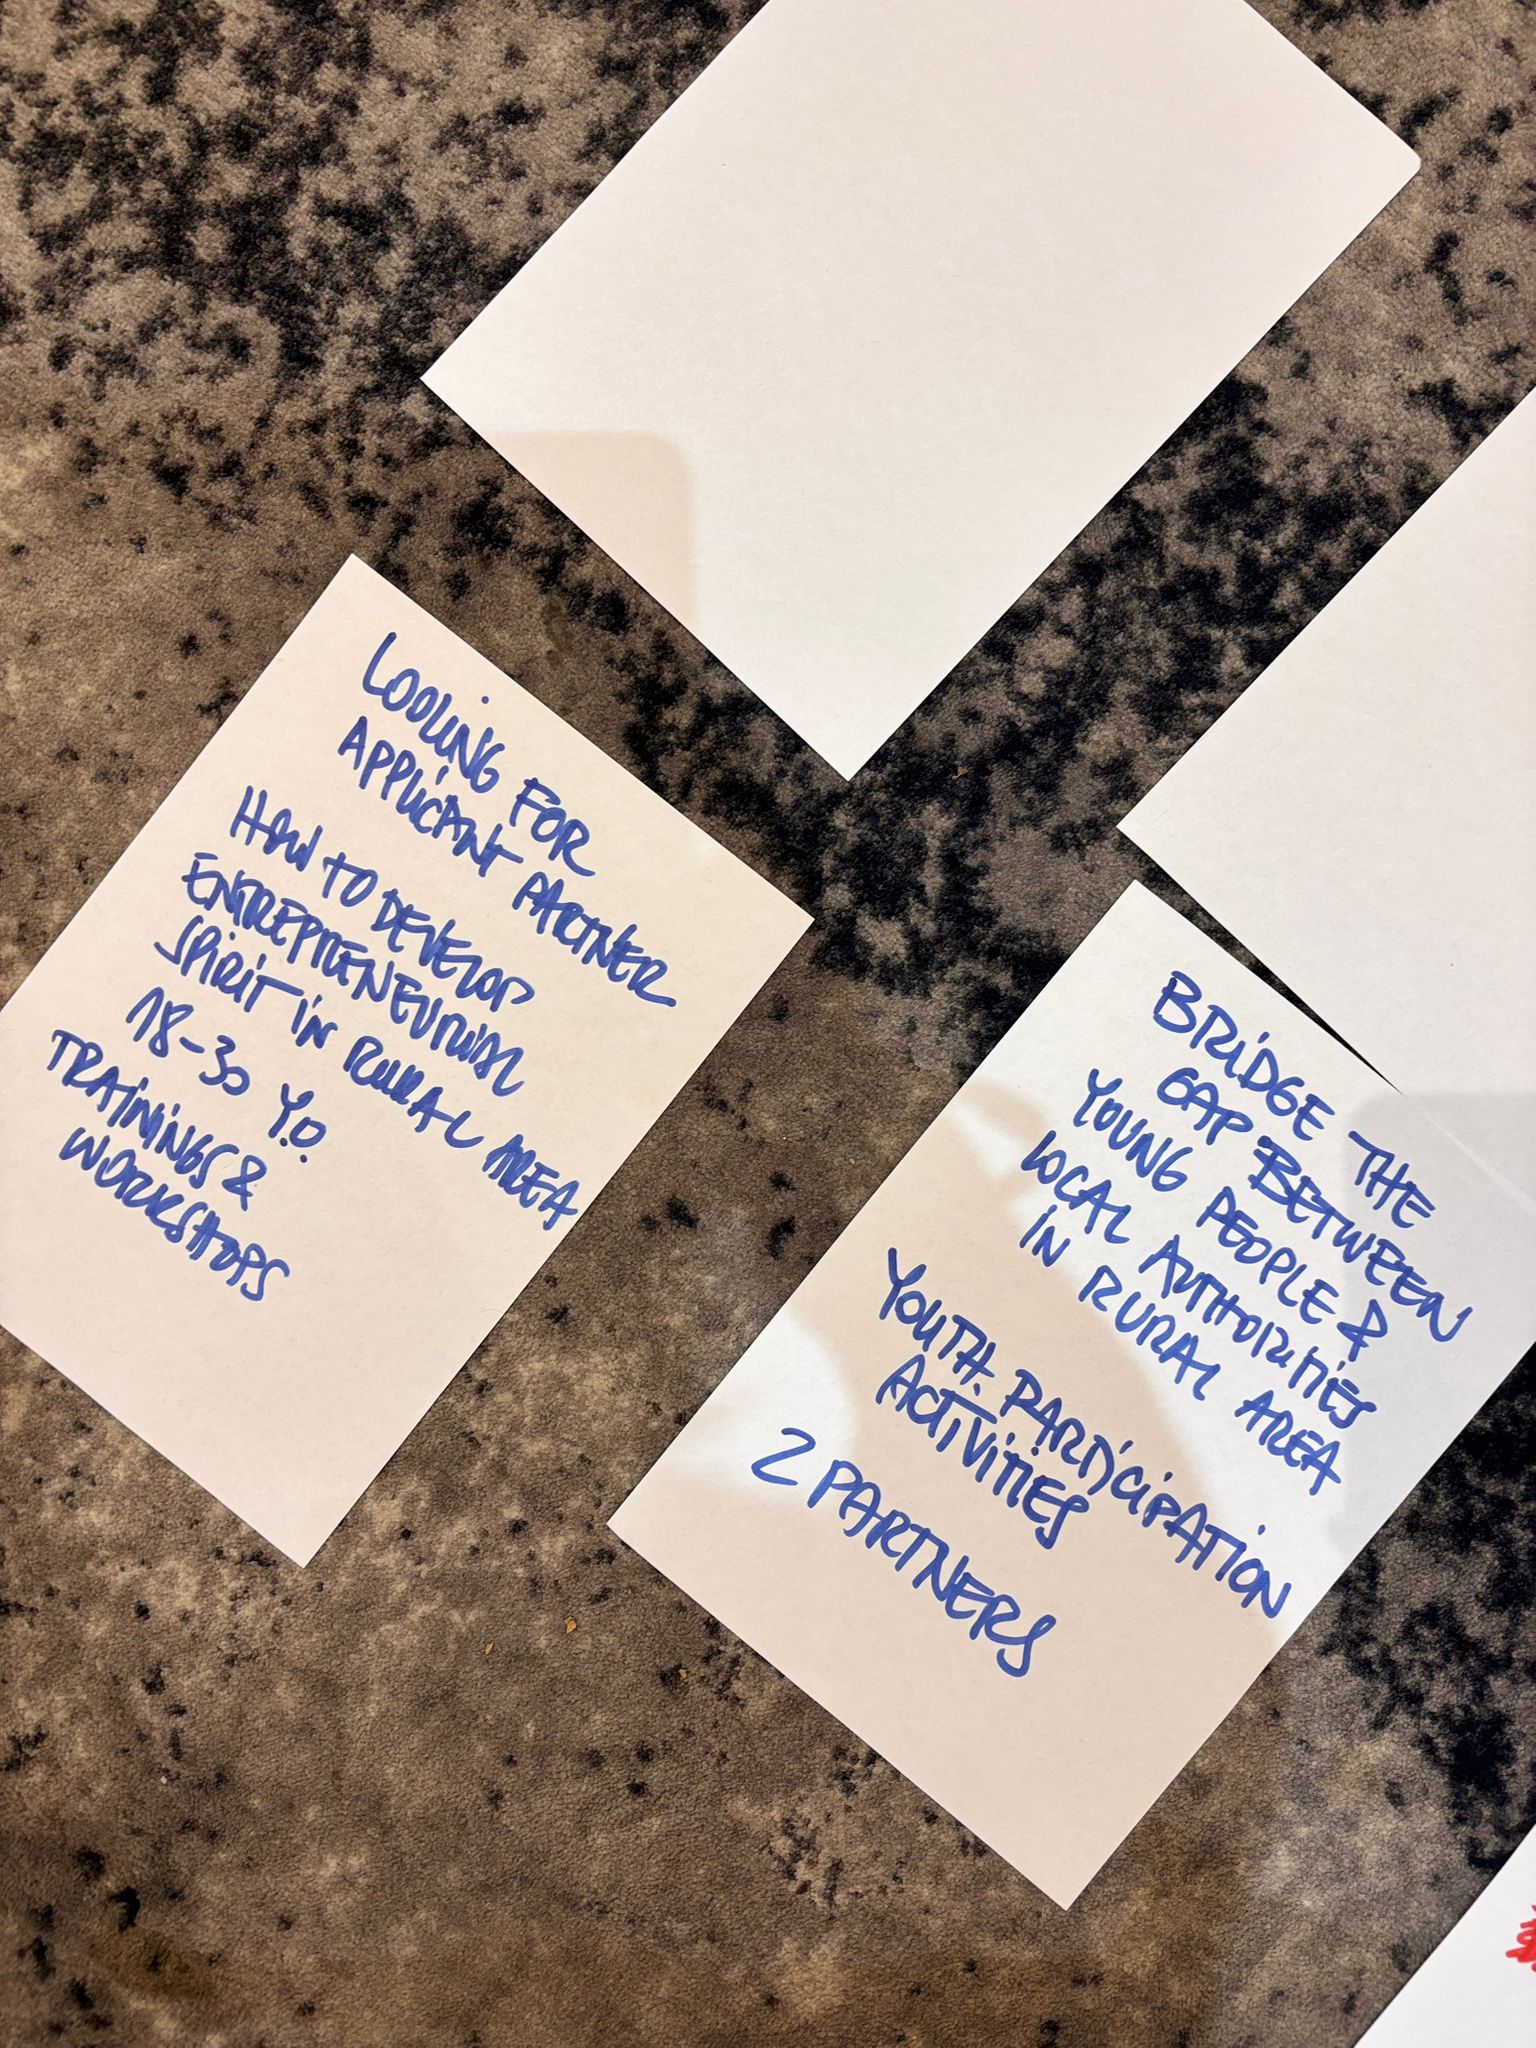 LOOKING FOR
APPLICANT PARTNER
HOW TO DEVELOP
ENTREPRENEURIAL
SPIRIT IN RURAL AREA
18-30 Y.O.
TRAININGS &
WORKSHOPS
BRIDGE THE
GAP BETWEEN
YOUNG PEOPLE &
LOCAL AUTHORITIES
IN RURAL AREA
YOUTH PARTICIPATION
ACTIVITIES
2 PARTNERS